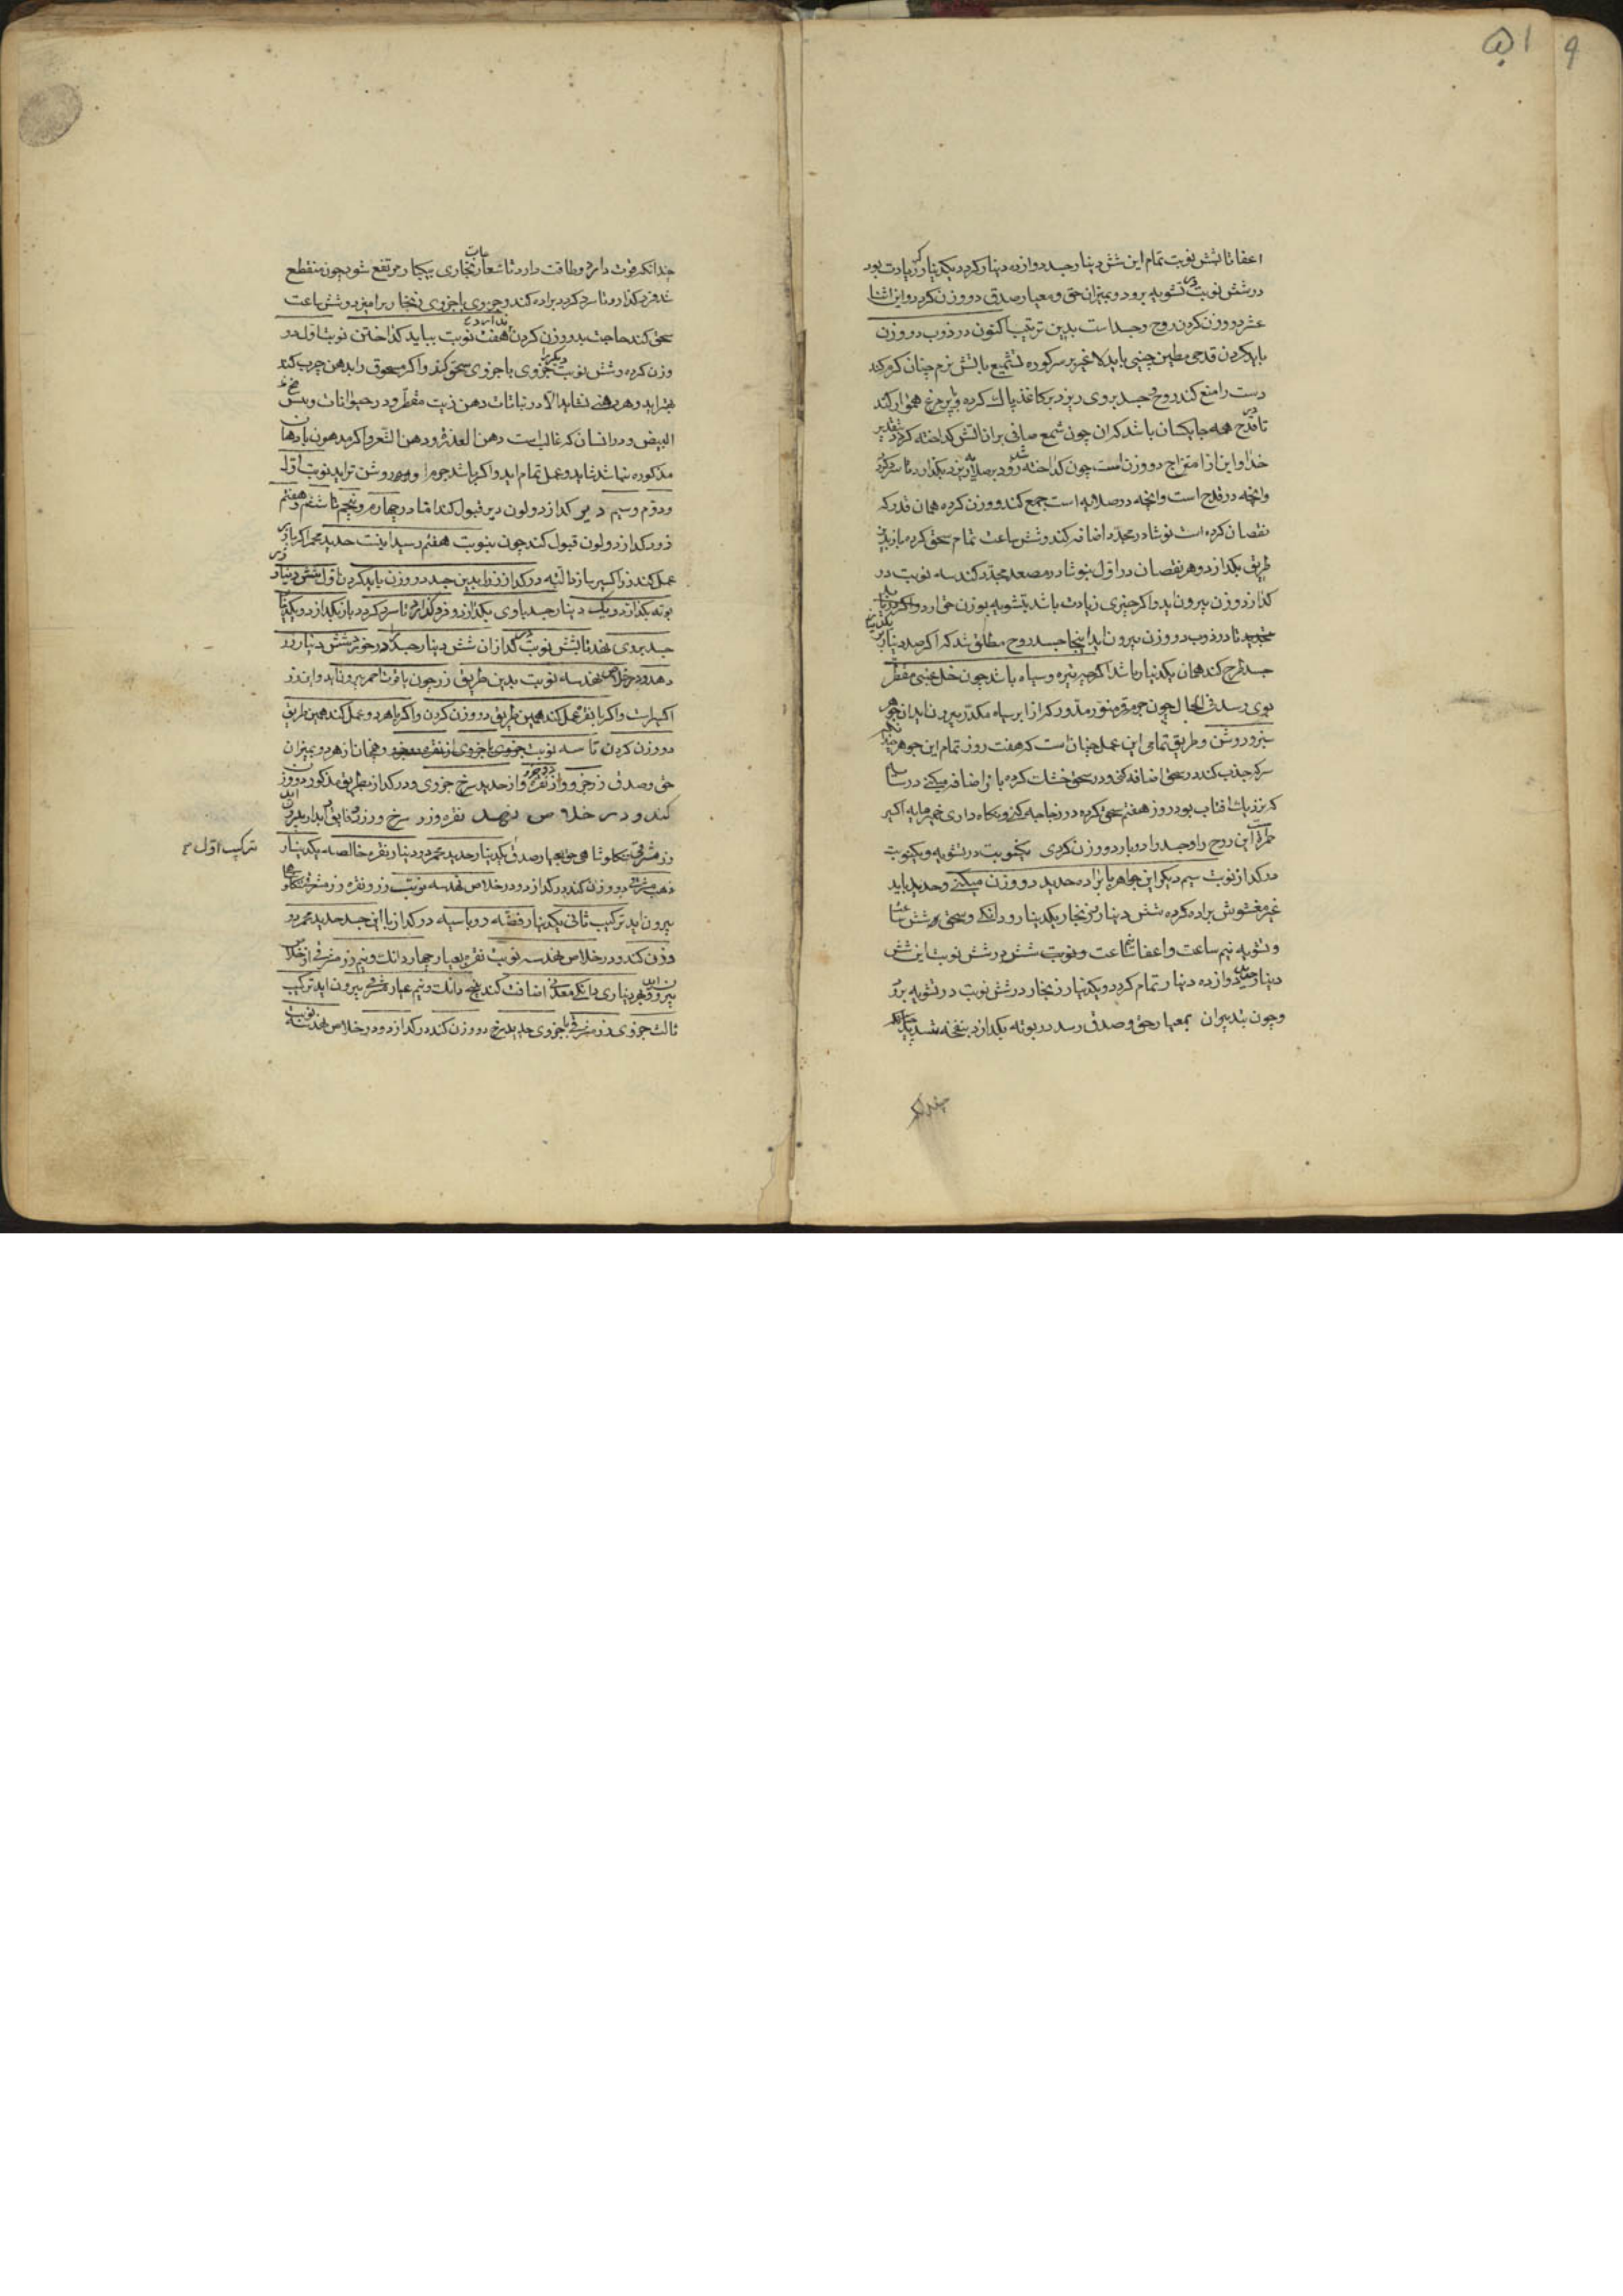 ۵۱
۹
اعفا تا بشش نوبت تمام این شش دینار جسد دوازده دینار کردد یکدینار زیادت بود
در شش نوبت تشویه برود و بمیزان حق و معیار صدق دو وزن کردد و این اثنا
عشر دو وزن کردن روح و جسد است بدین ترتیب اکنون در ذوب دو وزن
باید کردن قدحی مطین چینی باید لاغیر بر سر کوره تشمیع با تش نرم چنان کرم کند
دست را منع کند روح و جسد بروی ریزد بر کاغذ پاک کرده و بپر مرغ هموار کند
تا قدح همه جا یکسان باشد که ان چون شمع صافی بران اتش کداخته کردد بتقدیر
خدا و این از امتزاج دو وزن است چون کداخته شد زود بر صلایه ریزد بکذارد تا سرد کردد
وانچه در قدح است وانچه در صلایه است جمع کند و وزن کرده همان قدر که
نقصان کرده است نوشادر مجدد اضافه کند و شش ساعت تمام سحق کرده باز بدین
طریق بکدازد و هر نقصان در اول بنوشادر مصعد مجدد کند سه نوبت در
کداز دو وزن بیرون اید و اکر چیزی زیادت باشد بتشویه بوزن حق ارد
تجدید تا در ذوب دو وزن بیرون اید اینجا جسد روح مطلق شد که اکر صد دینار
جسد طرح کند همان یکدینار باشد اکرچه تیره و سیاه باشد چون خل عنبی مقطر
بوی رسد فی الحال چون جرم قمر منور مدور که از ابر سیاه مکدر بیرون اید ان جوهر
سبز و روشن و طریق تمامی این عمل چنان است که هفت روز تمام این جوهر
سرکه جذب کند در سحق اضافه کنی و در سحق خشک کرده باز اضافه میکنی در
که نزدیک افتاب بود روز هفتم سحق کرده در زجاجه کنی و نکاه داری خمیر مایه اکسیر
حمرة این روح را و جسد را دو بار دو وزن کردی یکنوبت در تشویه و یکنوبت
در کداز نوبت سیم دیکر این جواهر با براده حدید دو وزن میکنی و حدید باید
غیر مغشوش براده کرده شش دینار زنجار یکدینار و دانکی و سحق بر شش
و تشویه نیم ساعت و اعفا ساعت و نوبت شش در شش نوبت این شش
دینار دوازده دینار تمام کردد و یکدینار زنجار در شش نوبت در تشویه برود
وچون بتدبیران بمعیار حق و صدق رسد در بوته بکدازد بنفخه شدید
چندانکه
چندانکه قوت دارد و طاقت دارد تا شعارات زنجاری بیکبار مرتفع شود چون منقطع
شد فرو کذارد تا سرد کردد براده کند و جزوی با جزوی زنجار برامیزد و شش ساعت
سحق کند حاجت بدو وزن کردن ندارد هفت نوبت بباید کداختن نوبت اول دو
وزن کرده و شش نوبت دیکر جزوی با جزوی سحق کند و اکر مسحوق را بدهن چرب کند
بهتر اید و هر دهنی نشاید الا در نباتات دهن زیت مقطر و در حیوانات
البیض و در انسان که غالب است دهن العذره و دهن الشعر و اکر مدهون بادهان
مذکوره نباشد شاید و عمل تمام اید و اکر باشد جوهرا و روشن تر اید نوبت اول
و دوم و سیم دیر کدازد و لون دیر قبول کند اما در چهارم و پنجم تا ششم و هفتم
زود کدازد و لون قبول کند چون بنوبت هفتم رسید اینست حدید محمر اکر با زر
عمل کند زر اکسیر باز ثالثه در کداز زر با این جسد دو وزن باید کردن اول شش دینار زر
بوته بکدازد و یک دینار جسد با وی بکدازد و فرو کذارد تا سرد کردد باز بکدازد و یکدینار
جسد بروی نهد تا بشش نوبت کداز ان شش دینار جسد در خورد شش دینار زر
دهد و در خلاص نهد سه نوبت بدین طریق زر چون یاقوت احمر بیرون اید و این زر
اکسیر است و اکر با نقره عمل کند همین طریق دو وزن کردن و اکر با هر دو عمل کند همین طریق
دو وزن کردن تا سه نوبت جزوی با جزوی از نقره و همچنان از هر دو بمیزان
حق و صدق زر جزو و از نقره دو جزو و از حدید سرخ جزوی و در کداز بطریق مذکور دو وزن
کند و در خلاص نهد نقره و زر سرخ و رزین فایق ابدار بیرون اید
ترکیب اول
زر مشرقی تنکلوشاهی حق بمعیار صدق یکدینار حدید محمر دو دینار نقره خالصه یکدینار
ذهب دو وزن کند در کدازد و در خلاص نهد سه نوبت زر و نقره زر مشرقی
بیرون اید ترکیب ثانی یکدینار فضه رو باسیه در کداز با این جسد حدید محمر دو
وزن کند و در خلاص نهد سه نوبت نقره بعیار چهار دانک و نیم زر مشرقی از خلاص
بیرون اید و بهر دیناری دانکی معدنی اضافت کند پنج دانک و نیم عیار مشرقی بیرون اید ترکیب
ثالث جزوی زر مشرقی با جزوی حدید سرخ دو وزن کند در کدازد و در خلاص نهد سه نوبت